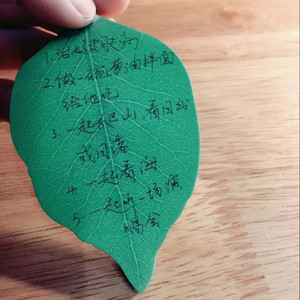 1. 治好皮肤病
2. 做一碗葱油拌面
给他吃
3. 一起去爬山，看日出
或日落
4. 一起看海
5. 一起听一场演
唱会